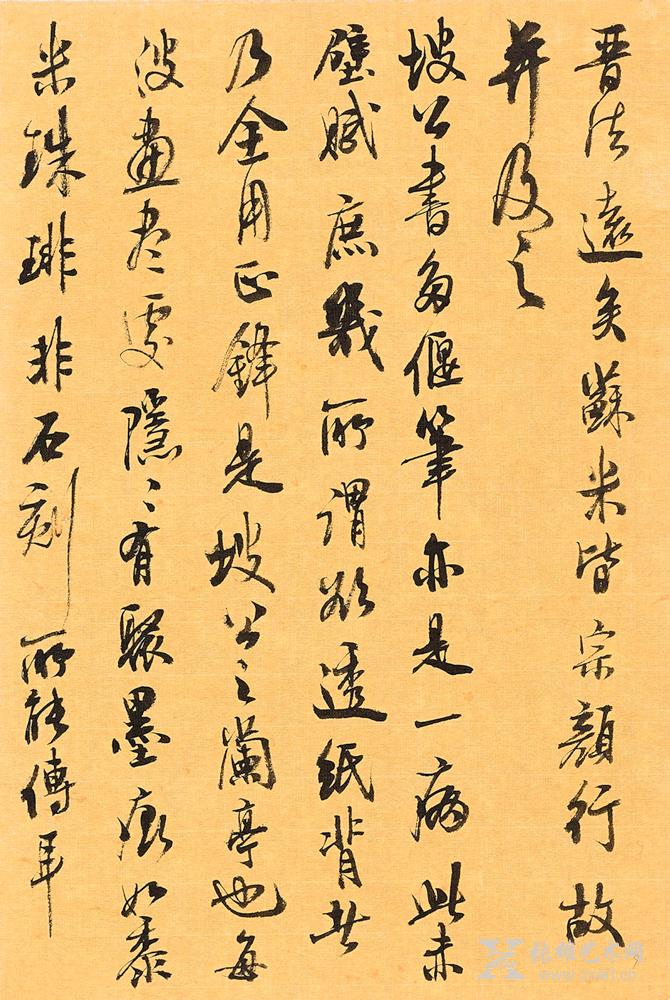 晋法遠矣蘇米皆宗顔行故
并及之
坡公書多偃筆亦是一病此赤
壁賦庶幾所謂欲透紙背者
乃全用正鋒是坡公之蘭亭也每
波畫尽處隱〻有聚墨痕如黍
米珠琲非石刻所能傳耳